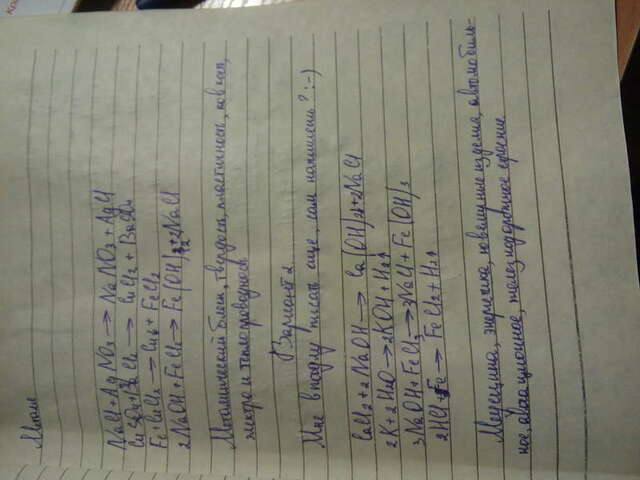 NaCl+AgNO₃ → NaNO₃+AgCl
CuSO₄+BaCl₂ → CuCl₂+BaSO₄
Fe+CuCl₂ → Cu↓+FeCl₂
2NaOH+FeCl₂ → Fe(OH)₂+2NaCl
Металлический блеск, твёрдость, пластичность, ковкость,
электро и теплопроводность
Вариант 2
Мне в падлу писать еще, сам напишешь? :-)
CaCl₂+2NaOH → Ca(OH)₂+2NaCl
2K+2H₂O → 2KOH+H₂↑
3NaOH+FeCl₃ → 3NaCl+Fe(OH)₃
2HCl+Fe → FeCl₂+H₂↑
Медицина, энергетика, ювелирные изделия, автомобиль-
ное, авиационное, железнодорожное